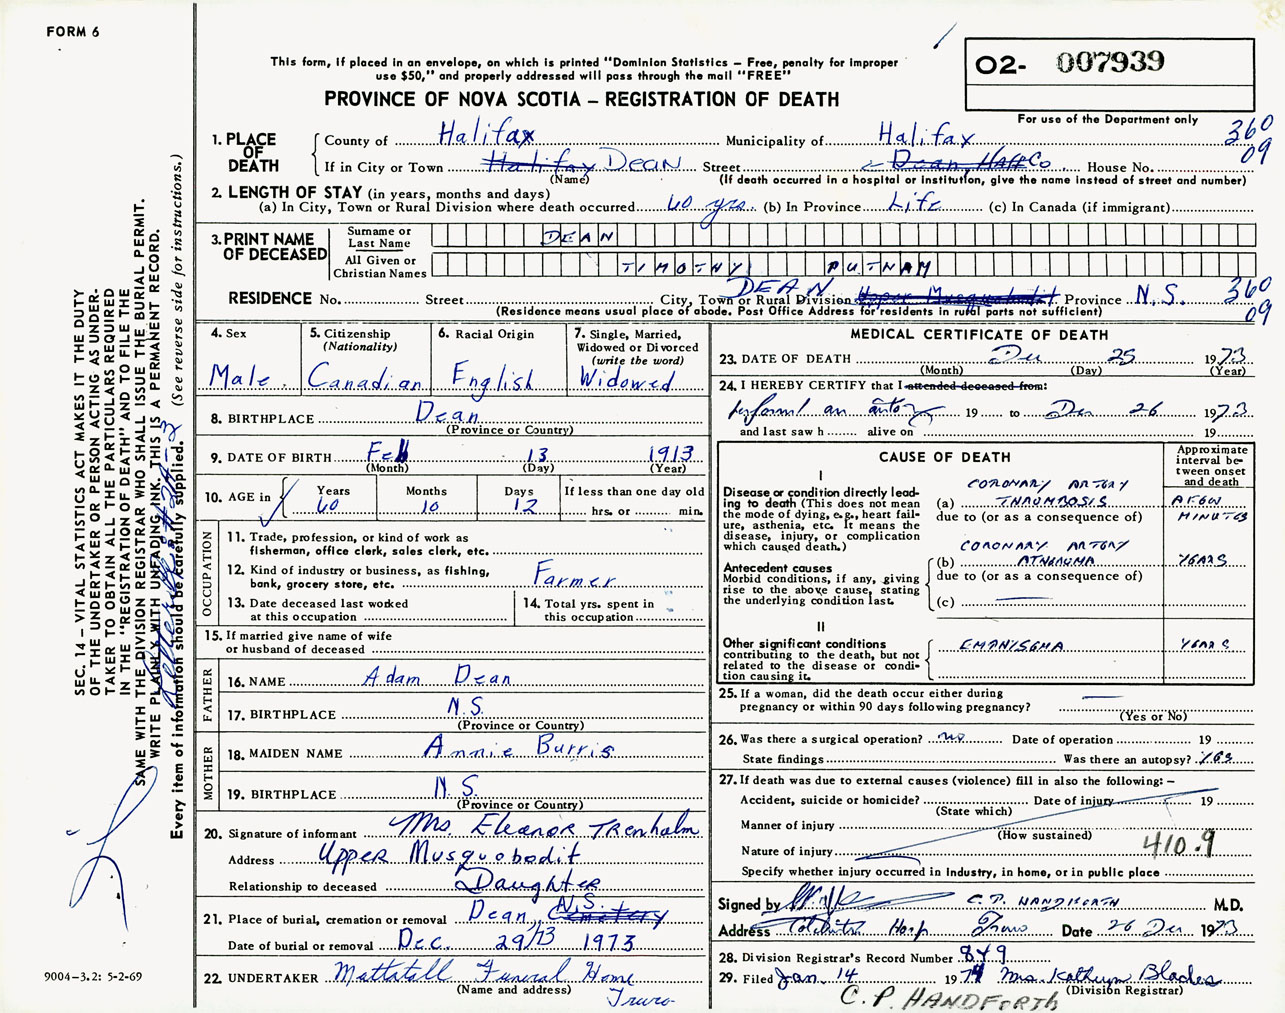 FORM 6
This form, if placed in an envelope, on which is printed "Dominion Statistics – Free, penalty for improper
use $50," and properly addressed will pass through the mail "FREE"
O2- 007939
PROVINCE OF NOVA SCOTIA – REGISTRATION OF DEATH
For use of the Department only
1. PLACE OF DEATH
County of Halifax Municipality of Halifax 360
If in City or Town Halifax DEAN Street Dean Half Co House No. 09
(Name) (If death occurred in a hospital or institution, give the name instead of street and number)
2. LENGTH OF STAY (in years, months and days)
(a) In City, Town or Rural Division where death occurred 60 yrs. (b) In Province Life (c) In Canada (if immigrant)
3. PRINT NAME OF DECEASED
Surname or Last Name DEAN
All Given or Christian Names TIMOTHY PUTNAM
DEAN 360
RESIDENCE No. Street City, Town or Rural Division Upper Musquodobit Province N.S. 09
(Residence means usual place of abode. Post Office Address for residents in rural parts not sufficient)
4. Sex
Male.
5. Citizenship
(Nationality)
Canadian
6. Racial Origin
English
7. Single, Married,
Widowed or Divorced
(write the word)
Widowed
8. BIRTHPLACE Dean
(Province or Country)
9. DATE OF BIRTH Feb 13 1913
(Month) (Day) (Year)
10. AGE in
Years Months Days If less than one day old
60 10 12 hrs. or min.
OCCUPATION
11. Trade, profession, or kind of work as
fisherman, office clerk, sales clerk, etc.
12. Kind of industry or business, as fishing,
bank, grocery store, etc. Farmer
13. Date deceased last worked
at this occupation
14. Total yrs. spent in
this occupation
15. If married give name of wife
or husband of deceased
FATHER
16. NAME Adam Dean
17. BIRTHPLACE N.S.
(Province or Country)
MOTHER
18. MAIDEN NAME Annie Burris
19. BIRTHPLACE N.S.
(Province or Country)
20. Signature of informant Mrs. Eleanor Trenholm
Address Upper Musquobodit
Relationship to deceased Daughter
21. Place of burial, cremation or removal Dean, N.S. Cemetery
Date of burial or removal Dec. 29/73 1973
22. UNDERTAKER Mattatall Funeral Home
(Name and address)
Truro
MEDICAL CERTIFICATE OF DEATH
23. DATE OF DEATH Dec 25 1973
(Month) (Day) (Year)
24. I HEREBY CERTIFY that I attended deceased from:
perform an autopsy 19 to Dec 26 1973
and last saw h alive on 19
CAUSE OF DEATH
Approximate
interval be-
tween onset
and death
I
Disease or condition directly lead-
ing to death (This does not mean
the mode of dying, e.g., heart fail-
ure, asthenia, etc. It means the
disease, injury, or complication
which caused death.)
CORONARY ARTERY
(a) THROMBOSIS A FEW
due to (or as a consequence of) MINUTES
CORONARY ARTERY
(b) ATHEROMA YEARS
due to (or as a consequence of)
(c)
Antecedent causes
Morbid conditions, if any, giving
rise to the above cause, stating
the underlying condition last.
II
Other significant conditions
contributing to the death, but not
related to the disease or condi-
tion causing it.
EMPHYSEMA YEARS
25. If a woman, did the death occur either during
pregnancy or within 90 days following pregnancy?
(Yes or No)
26. Was there a surgical operation? no Date of operation 19
State findings Was there an autopsy? YES
27. If death was due to external causes (violence) fill in also the following: –
Accident, suicide or homicide? Date of injury 19
(State which)
Manner of injury
(How sustained)
Nature of injury 410.9
Specify whether injury occurred in industry, in home, or in public place
Signed by C. P. HANDFORTH M.D.
Address Colchester Hosp Truro Date 26 Dec 1973
28. Division Registrar's Record Number 849
29. Filed Jan. 14 1974 Mrs. Kathryn Blades
(Division Registrar)
C. P. HANDFORTH
SEC. 14 – VITAL STATISTICS ACT MAKES IT THE DUTY
OF THE UNDERTAKER OR PERSON ACTING AS UNDER-
TAKER TO OBTAIN ALL THE PARTICULARS REQUIRED
IN THE "REGISTRATION OF DEATH" AND TO FILE THE
SAME WITH THE DIVISION REGISTRAR WHO SHALL ISSUE THE BURIAL PERMIT.
WRITE PLAINLY WITH UNFADING INK. THIS IS A PERMANENT RECORD.
Every item of information should be carefully supplied. (See reverse side for instructions.)
9004–3.2: 5-2-69